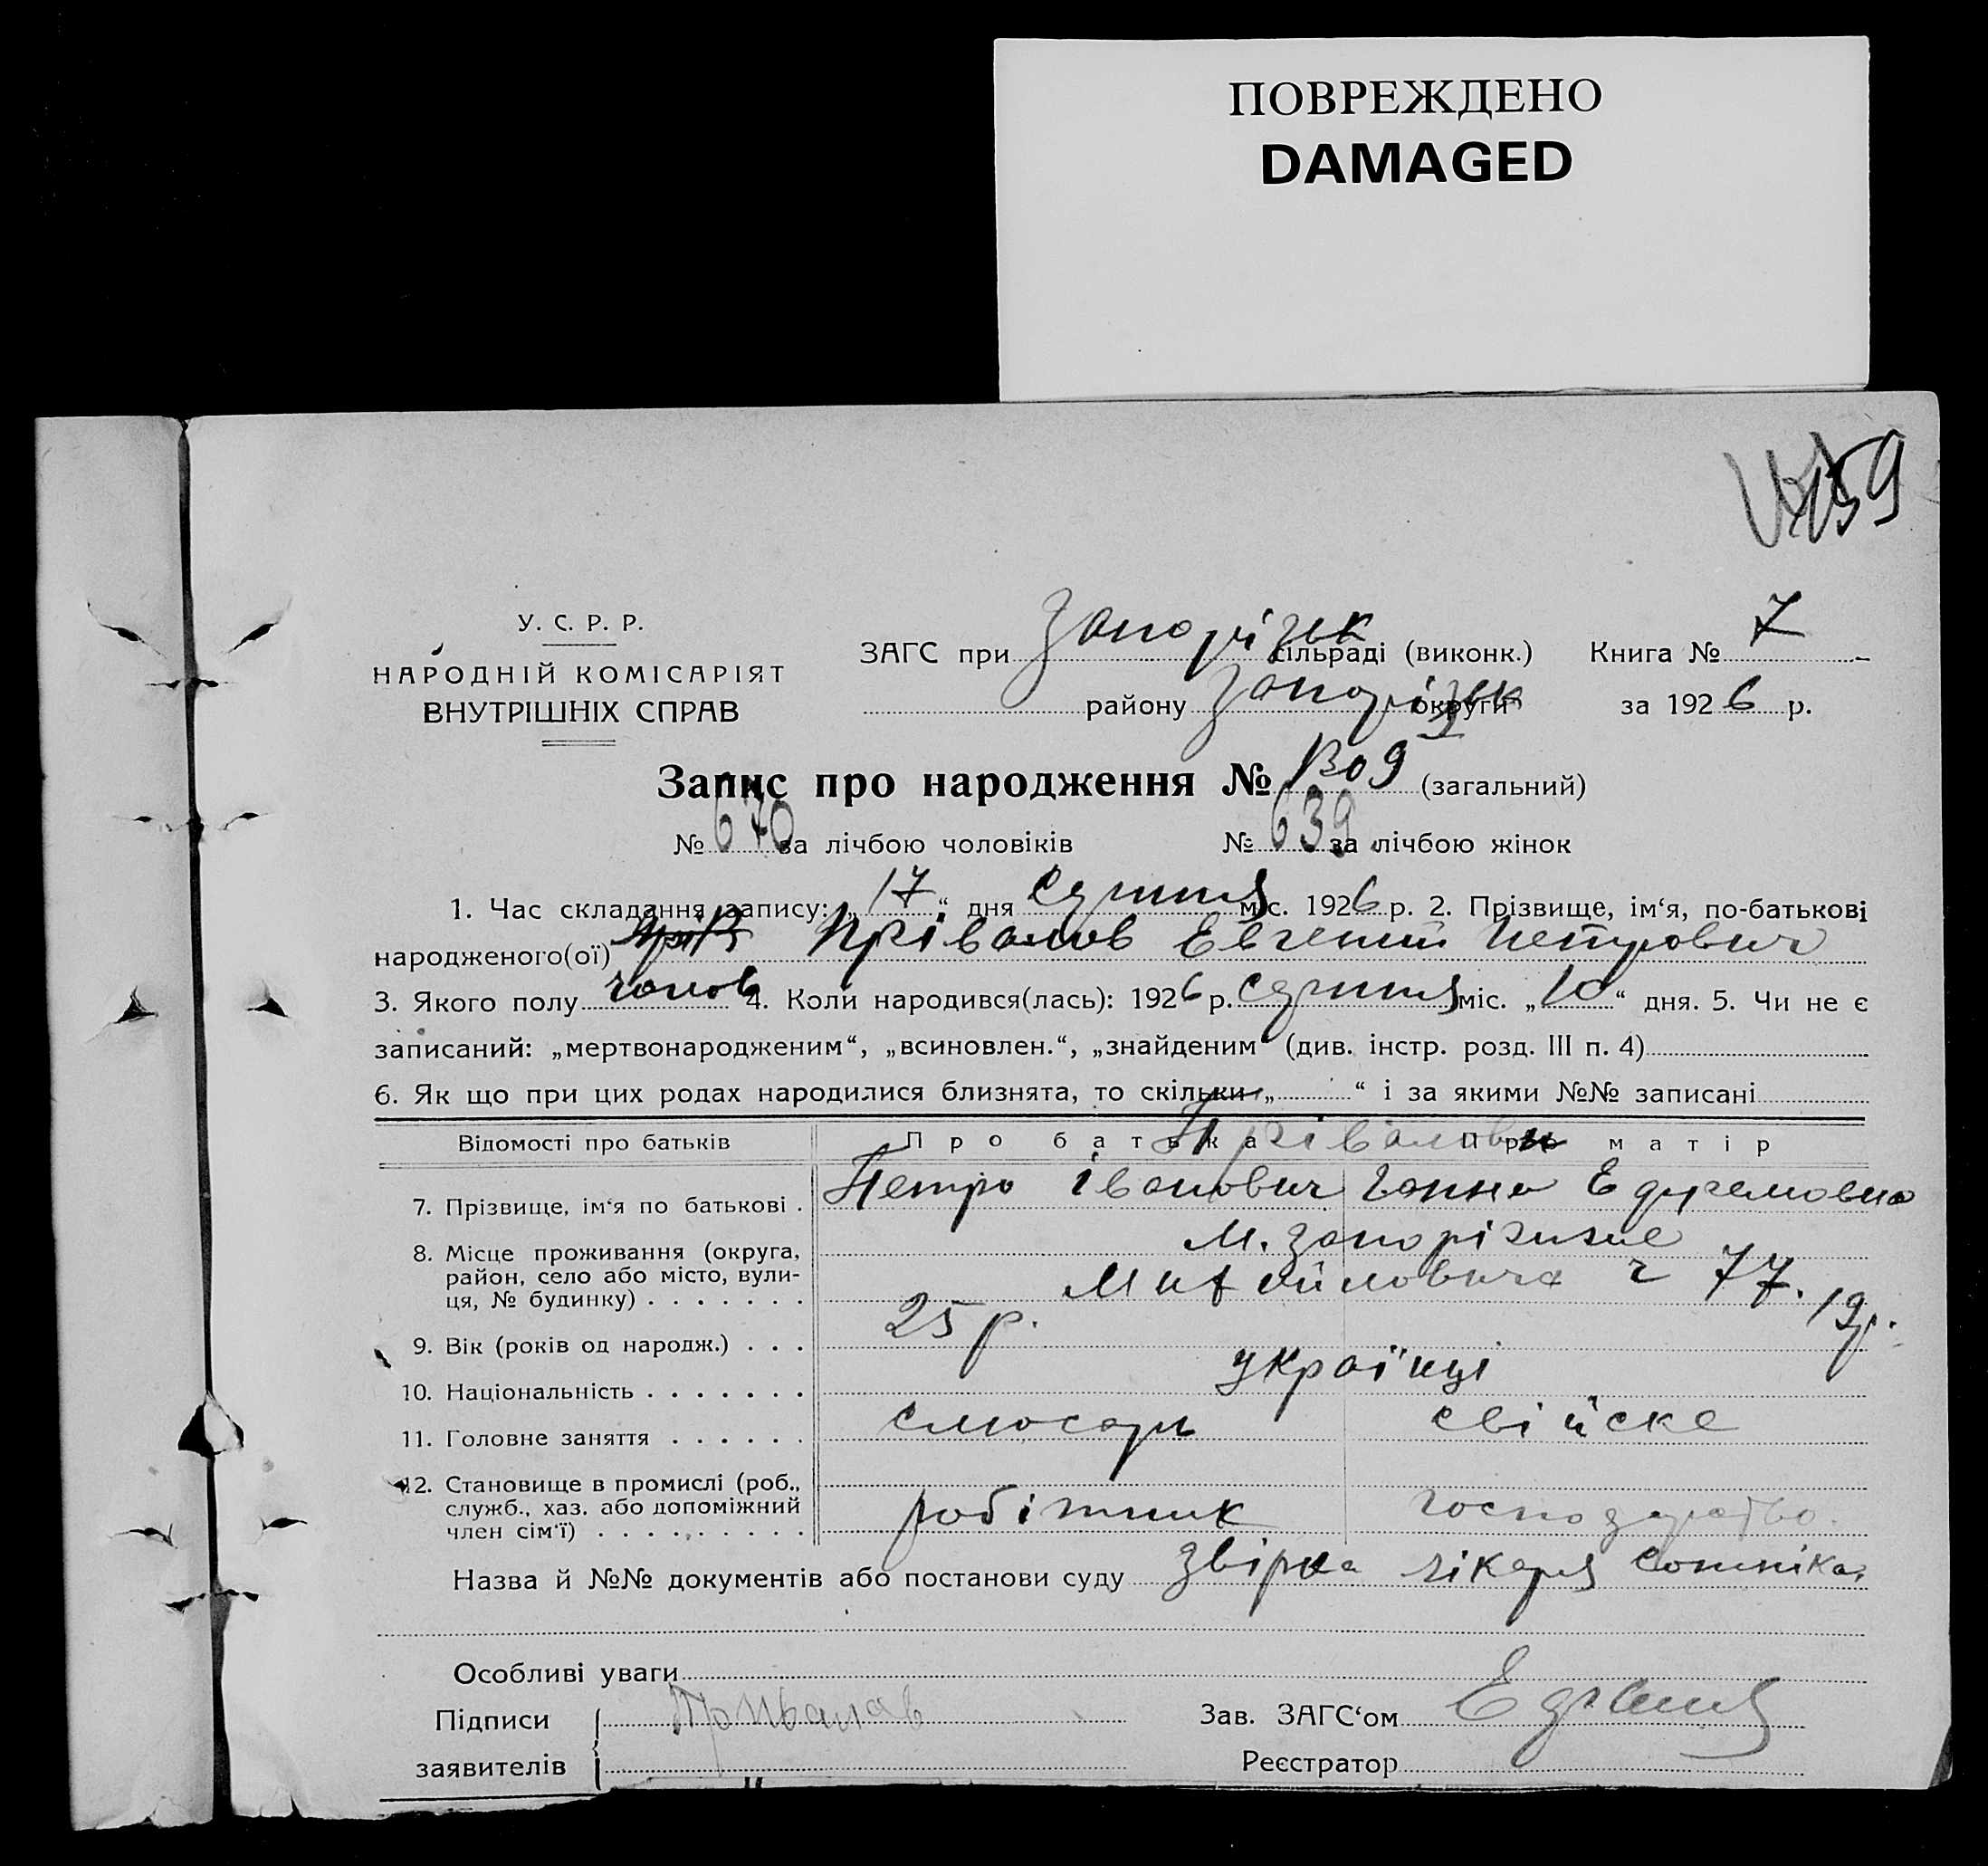 ПОВРЕЖДЕНО
DAMAGED
159
У. С. Р. Р.
НАРОДНІЙ КОМІСАРІЯТ
ВНУТРІШНІХ СПРАВ
ЗАГС при Запоріжк сільраді (виконк.) Книга № 7
району Запоріжк округи за 1926 р.
Запис про народження № 1309 (загальний)
№ 670 за лічбою чоловіків № 639 за лічбою жінок
1. Час складання запису: „17“ дня Серпня міс. 1926 р. 2. Прізвище, ім‘я, по-батькові
народженого(ої) Прівалов Евгений Петрович
3. Якого полу чолов 4. Коли народився(лась): 1926 р. Серпня міс. „10“ дня. 5. Чи не є
записаний: „мертвонародженим“, „всиновлен.“, „знайденим“ (див. інстр. розд. III п. 4)
6. Як що при цих родах народилися близнята, то скільки „ “ і за якими №№ записані
Відомості про батьків Про батька Про матір
Прівалови
7. Прізвище, ім‘я по батькові . Петро Іванович Ганна
8. Місце проживання (округа, м. Запоріжжє
район, село або місто, вули-
ця, № будинку) . . . . . . . 77.
9. Вік (років од народж.) . . . 25 р. 19 р.
10. Національність . . . . . . . українці
11. Головне заняття . . . . . . слюсарь свійске
12. Становище в промислі (роб.,
служб., хаз. або допоміжний робітник господарство.
член сім‘ї) . . . . . . . . .
Назва й №№ документів або постанови суду звірка лікаря Сотніка.
Особливі уваги
Підписи Привалов Зав. ЗАГС‘ом
заявителів Реєстратор